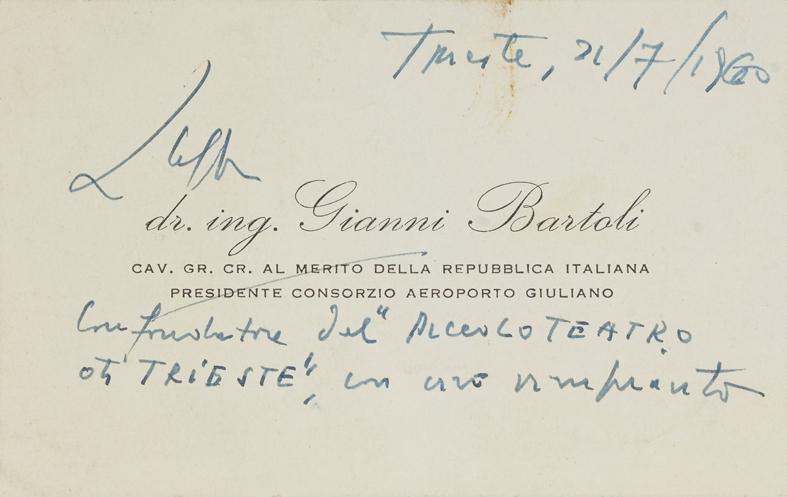 Trieste, 21/7/1960
dr. ing. Gianni Bartoli
CAV. GR. CR. AL MERITO DELLA REPUBBLICA ITALIANA
PRESIDENTE CONSORZIO AEROPORTO GIULIANO
Confondatore del "PICCOLO TEATRO
di TRIESTE", con vivo rimpianto